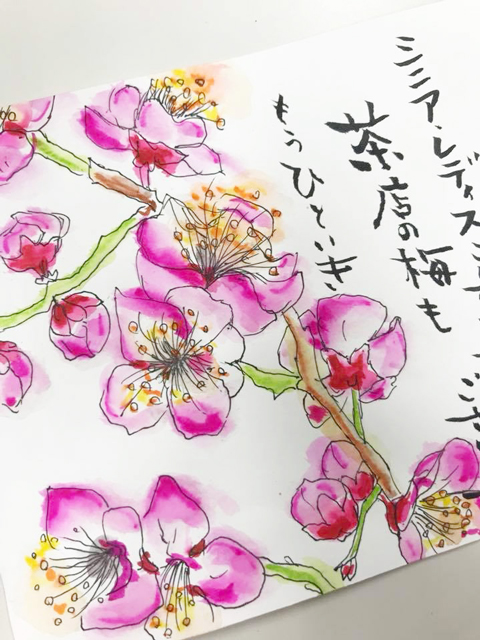 シニア・レディス
茶店の梅も
もうひといき